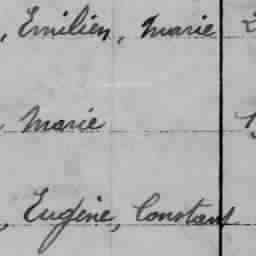 , Emilien, Marie
Marie
, Eugène, Constant